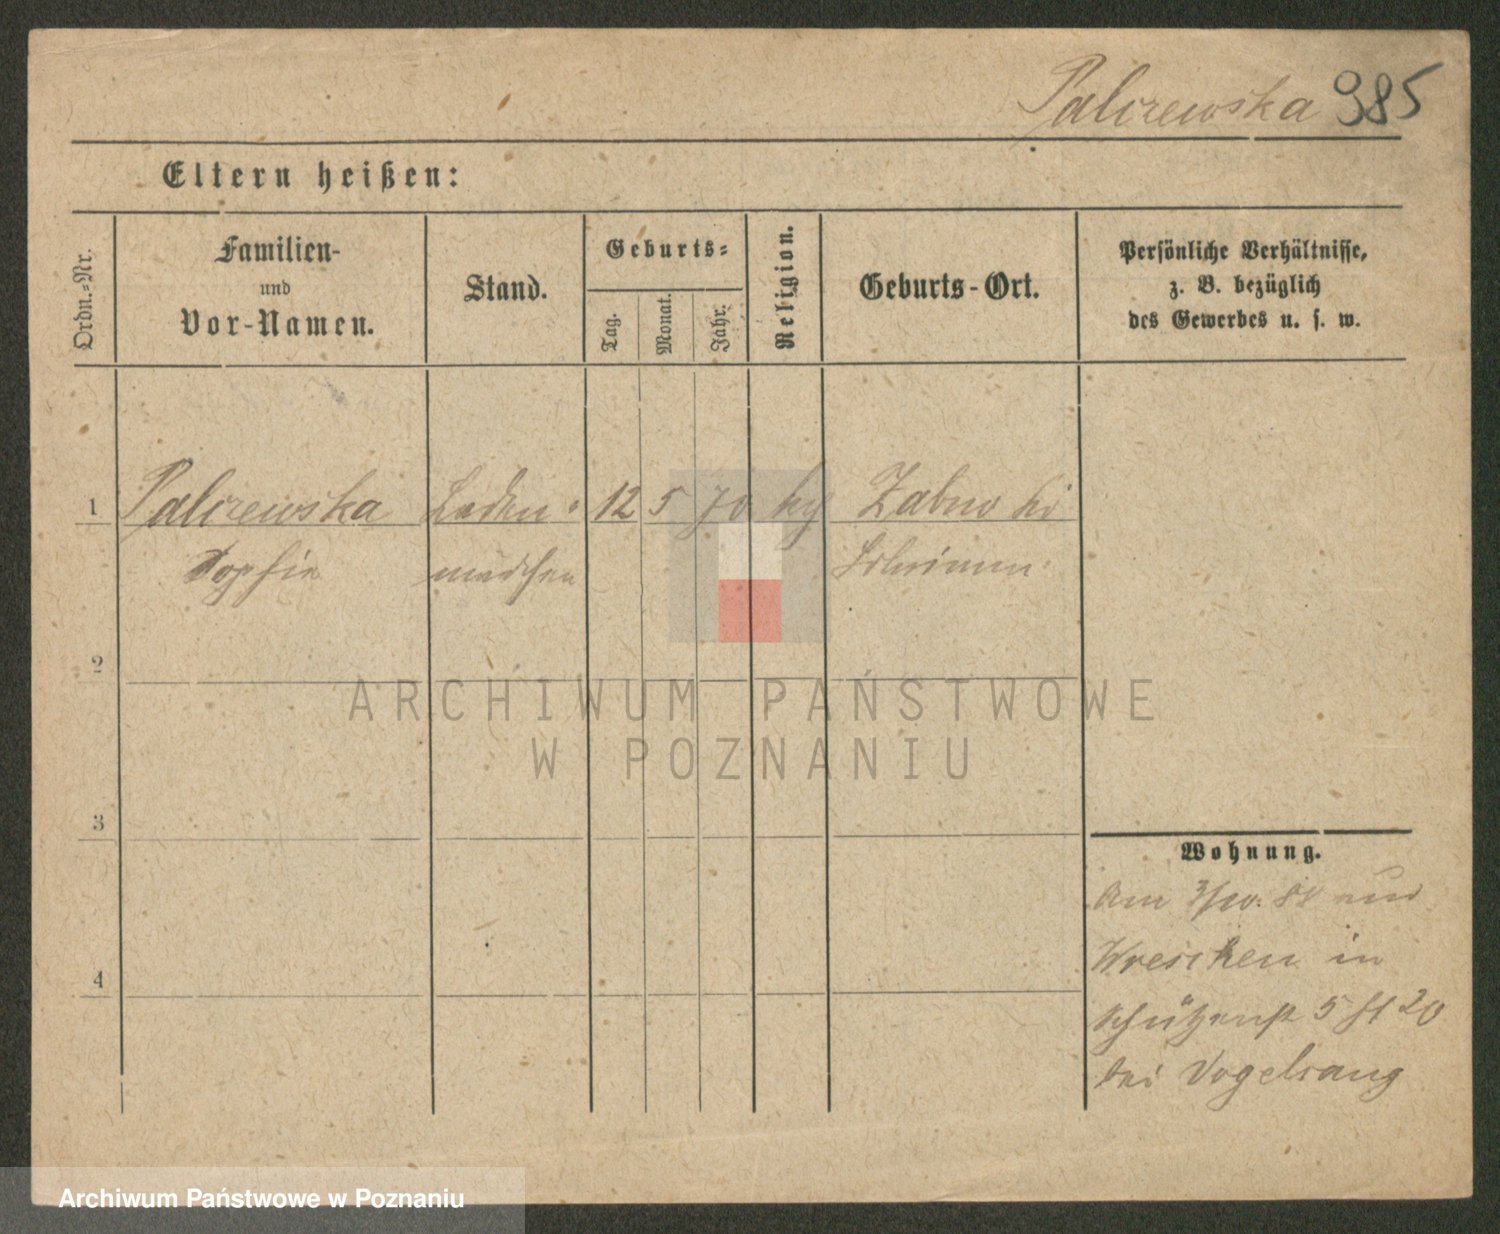 Palczewska 985
Eltern heißen:
Ordn.-Nr.
Familien-
und
Vor-Namen.
Stand.
Geburts-
Tag.
Monat.
Jahr.
Religion.
Geburts-Ort.
Persönliche Verhältnisse,
z. B. bezüglich
des Gewerbes u. s. w.
1 Palczewska Laden- 12 5 70 Zabno
Sophie mädchen Schrimm
2
3
4
Wohnung.
Am 3/10. 88 aus
Wreschen in
Schützenst 5
bei Vogelsang
ARCHIWUM PAŃSTWOWE
W POZNANIU
Archiwum Państwowe w Poznaniu